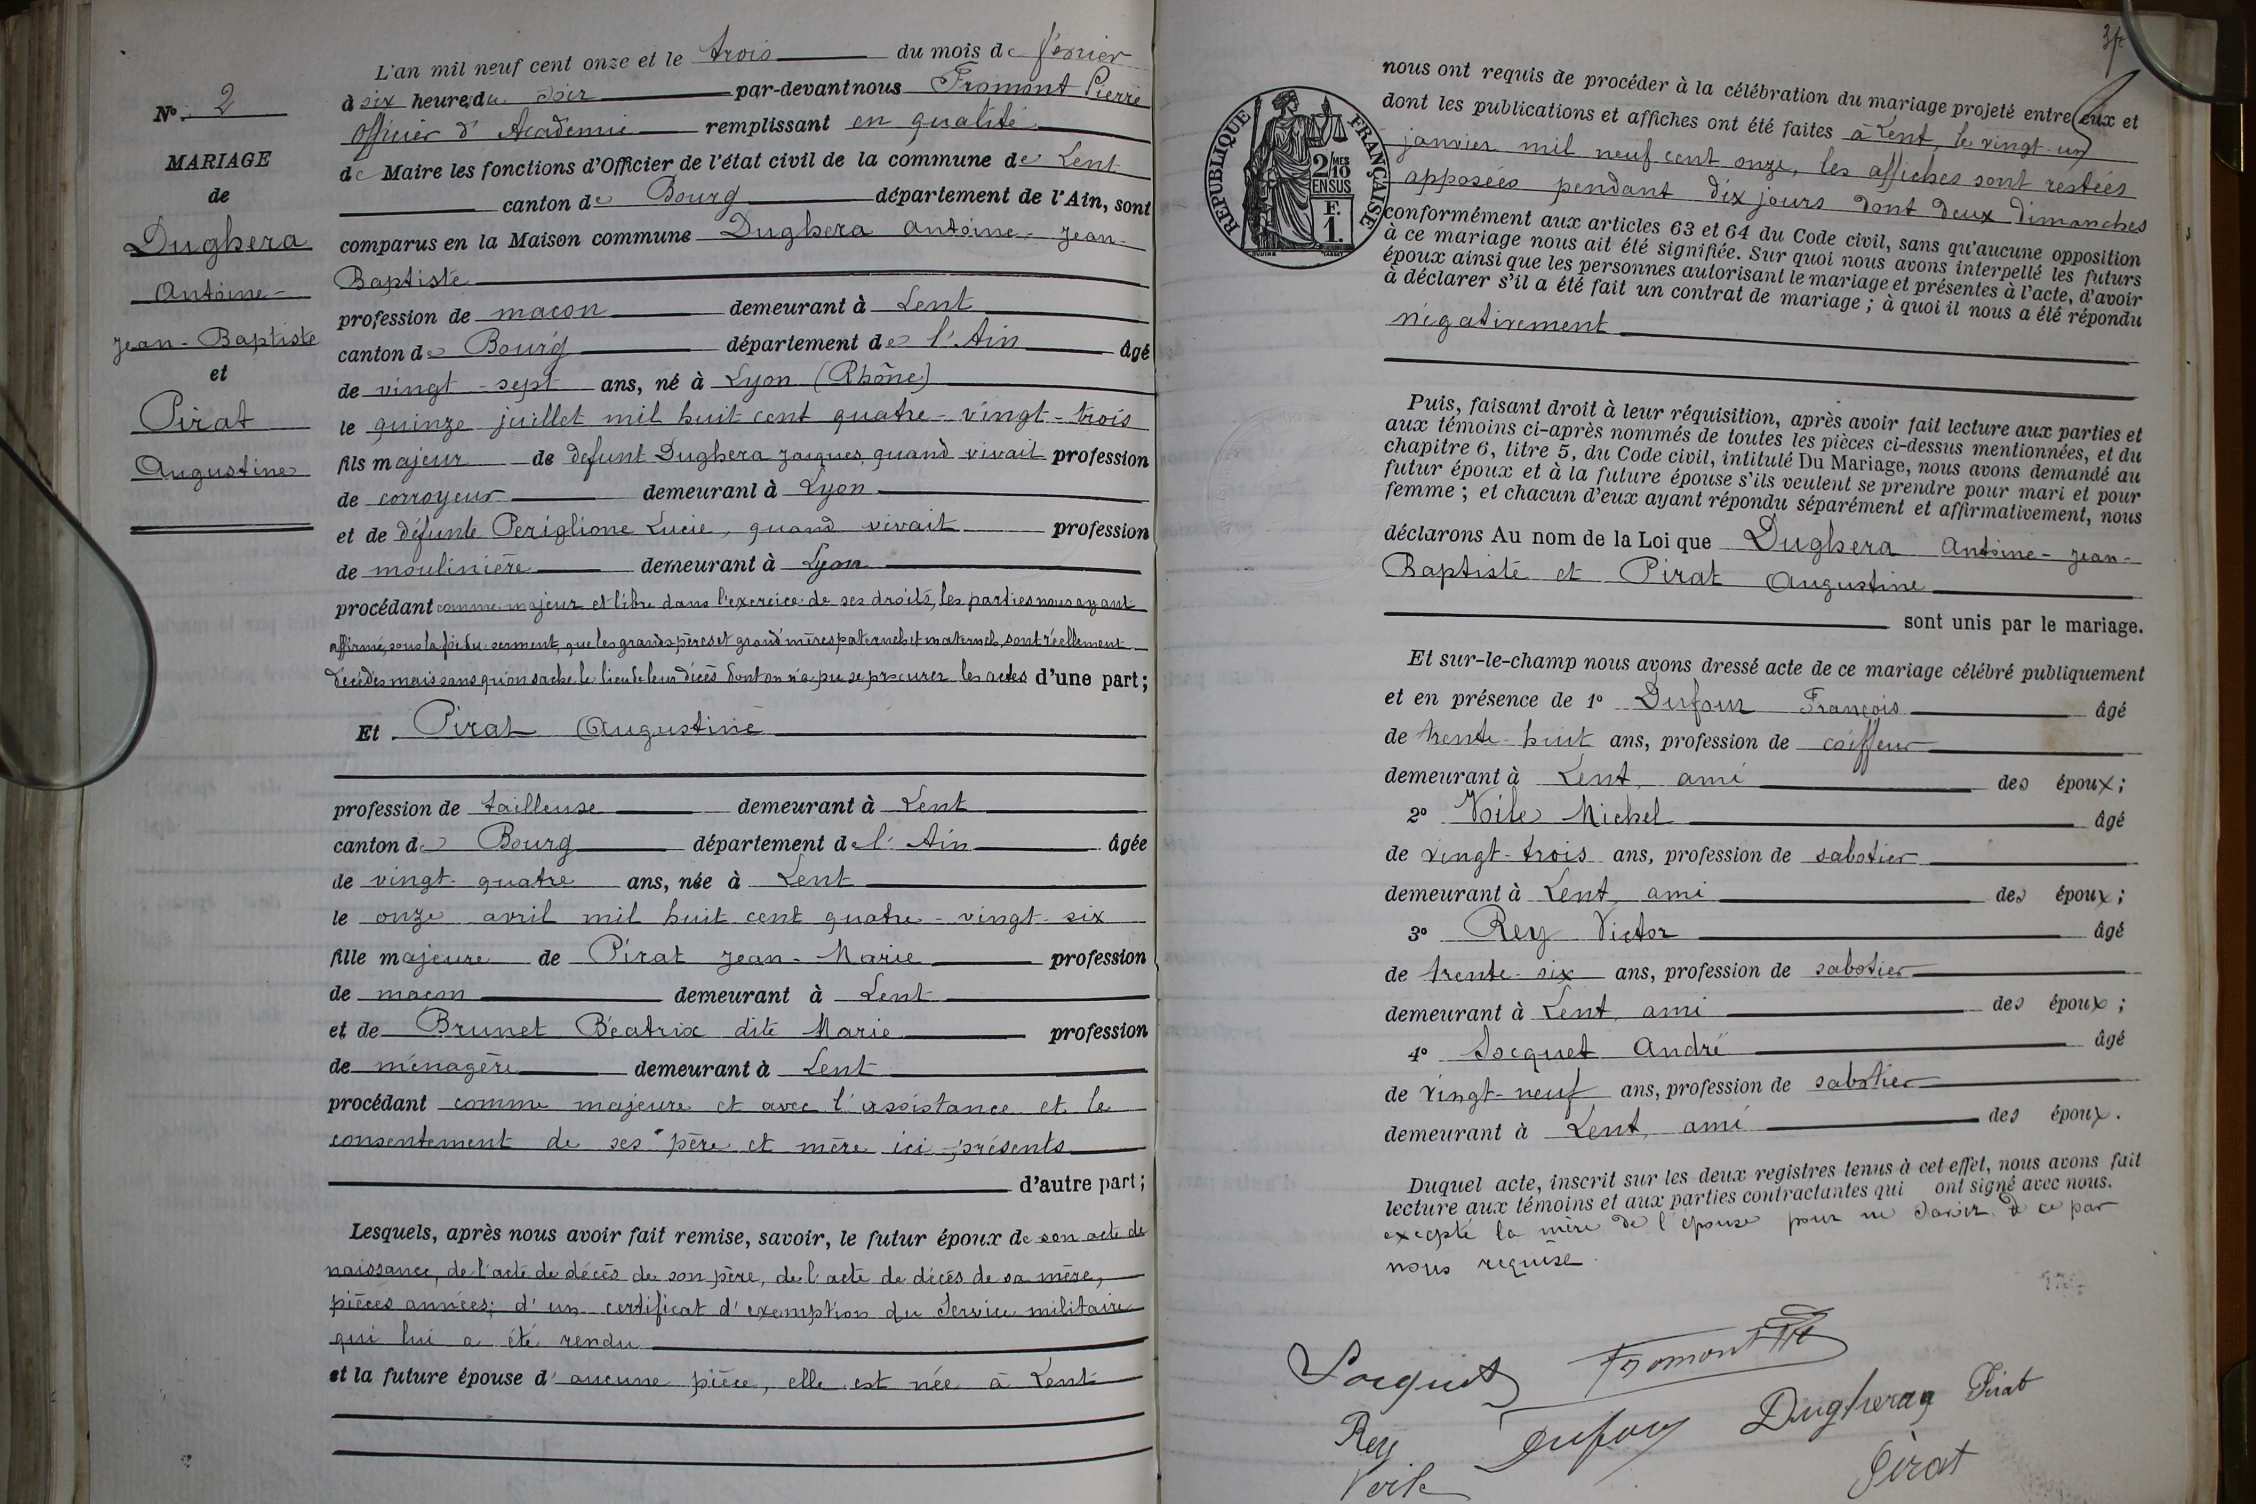 N° 2
MARIAGE
de
Dughera
Antoine-
Jean-Baptiste
et
Pirat
Augustine
L'an mil neuf cent onze et le trois du mois de février
à six heures du soir par-devant nous Fromont Pierre
officier d'Académie remplissant en qualité
de Maire les fonctions d'Officier de l'état civil de la commune de Lent
canton de Bourg département de l'Ain, sont
comparus en la Maison commune Dughera Antoine-Jean-
Baptiste
profession de maçon demeurant à Lent
canton de Bourg département de l'Ain âgé
de vingt-sept ans, né à Lyon (Rhône)
le quinze juillet mil huit cent quatre-vingt-trois
fils majeur de défunt Dughera Jacques, quand vivait profession
de corroyeur demeurant à Lyon
et de défunte Periglione Lucie, quand vivait profession
de moulinière demeurant à Lyon
procédant comme majeur et libre dans l'exercice de ses droits, les parties nous ayant
affirmé, sous la foi du serment, que les grands pères et grand'mères paternels et maternels, sont réellement
décédés mais sans qu'on sache le lieu de leur décès dont on n'a pu se procurer les actes d'une part;
Et Pirat Augustine
profession de tailleuse demeurant à Lent
canton de Bourg département de l'Ain âgée
de vingt-quatre ans, née à Lent
le onze avril mil huit cent quatre-vingt-six
fille majeure de Pirat Jean-Marie profession
de maçon demeurant à Lent
et de Brunet Béatrix dite Marie profession
de ménagère demeurant à Lent
procédant comme majeure et avec l'assistance et le
consentement de ses père et mère ici présents
d'autre part;
Lesquels, après nous avoir fait remise, savoir, le futur époux de son acte de
naissance, de l'acte de décès de son père, de l'acte de décès de sa mère,
pièces année; d'un certificat d'exemption du Service militaire
qui lui a été rendu
et la future épouse d'aucune pièce, elle est née à Lent
nous ont requis de procéder à la célébration du mariage projeté entre eux et
dont les publications et affiches ont été faites à Lent, le vingt-un
janvier mil neuf cent onze, les affiches sont restées
apposées pendant dix jours dont deux dimanches
conformément aux articles 63 et 64 du Code civil, sans qu'aucune opposition
à ce mariage nous ait été signifiée. Sur quoi nous avons interpellé les futurs
époux ainsi que les personnes autorisant le mariage et présentes à l'acte, d'avoir
à déclarer s'il a été fait un contrat de mariage; à quoi il nous a été répondu
négativement
RÉPUBLIQUE FRANÇAISE
2/10MES
EN SUS
F.
1.
Puis, faisant droit à leur réquisition, après avoir fait lecture aux parties et
aux témoins ci-après nommés de toutes les pièces ci-dessus mentionnées, et du
chapitre 6, titre 5, du Code civil, intitulé Du Mariage, nous avons demandé au
futur époux et à la future épouse s'ils veulent se prendre pour mari et pour
femme; et chacun d'eux ayant répondu séparément et affirmativement, nous
déclarons Au nom de la Loi que Dughera Antoine-Jean-
Baptiste et Pirat Augustine
sont unis par le mariage.
Et sur-le-champ nous avons dressé acte de ce mariage célébré publiquement
et en présence de 1° Dufour François âgé
de trente-huit ans, profession de coiffeur
demeurant à Lent, ami des époux;
2° Voile Michel âgé
de vingt-trois ans, profession de sabotier
demeurant à Lent, ami des époux;
3° Rey Victor âgé
de trente-six ans, profession de sabotier
demeurant à Lent, ami des époux;
4° Socquet André âgé
de vingt-neuf ans, profession de sabotier
demeurant à Lent, ami des époux.
Duquel acte, inscrit sur les deux registres tenus à cet effet, nous avons fait
lecture aux témoins et aux parties contractantes qui ont signé avec nous.
excepté la mère de l'épouse pour ne savoir de ce par
nous requise.
Socquet Fromont
Rey Dufour Dughera Pirat
Voile Pirat